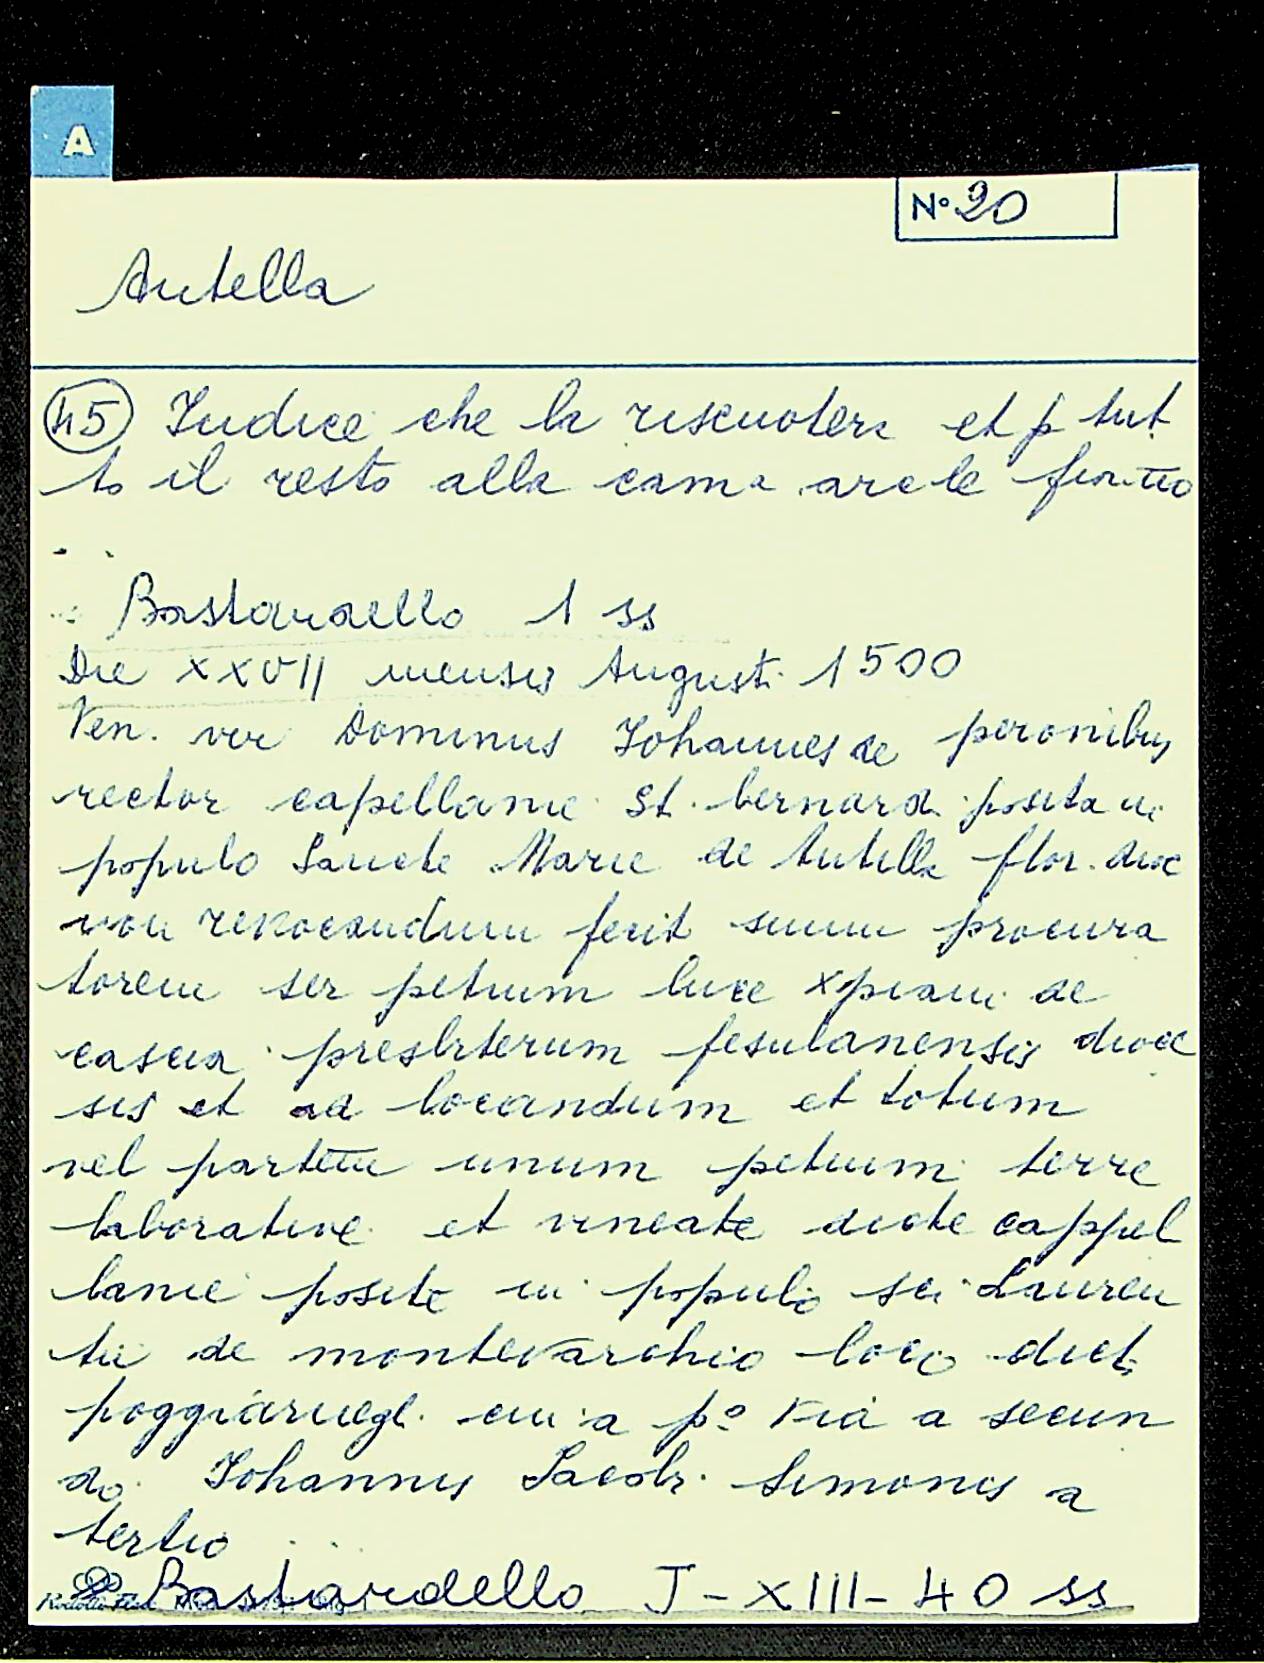 A
N° 20
Antella
45 Iudice che la riscuotera et p tut
to il resto alla cam a arcle fior.tio
Bastardello 1 ss
Die XXVII mensis Augusti 1500
Ven. vir Dominus Iohannes de peronibus
rector capellanie St. bernardi posita in
populo Sancte Marie de Antella flor. dioc
non revocandum fecit suum procura
torem ser petrum luce xpiani de
cascia presbiterum fesulanensis dioce
sis et ad locandum et totum
vel partem unum petium terre
laborative et vineate dicte cappel
lanie posite in populo sci Lauren
tii de montevarchio loco dict
poggiarnegl. cui a p° via a secun
do Iohannis Iacobi Simonis a
tertio
Bastardello J-XIII-40 ss